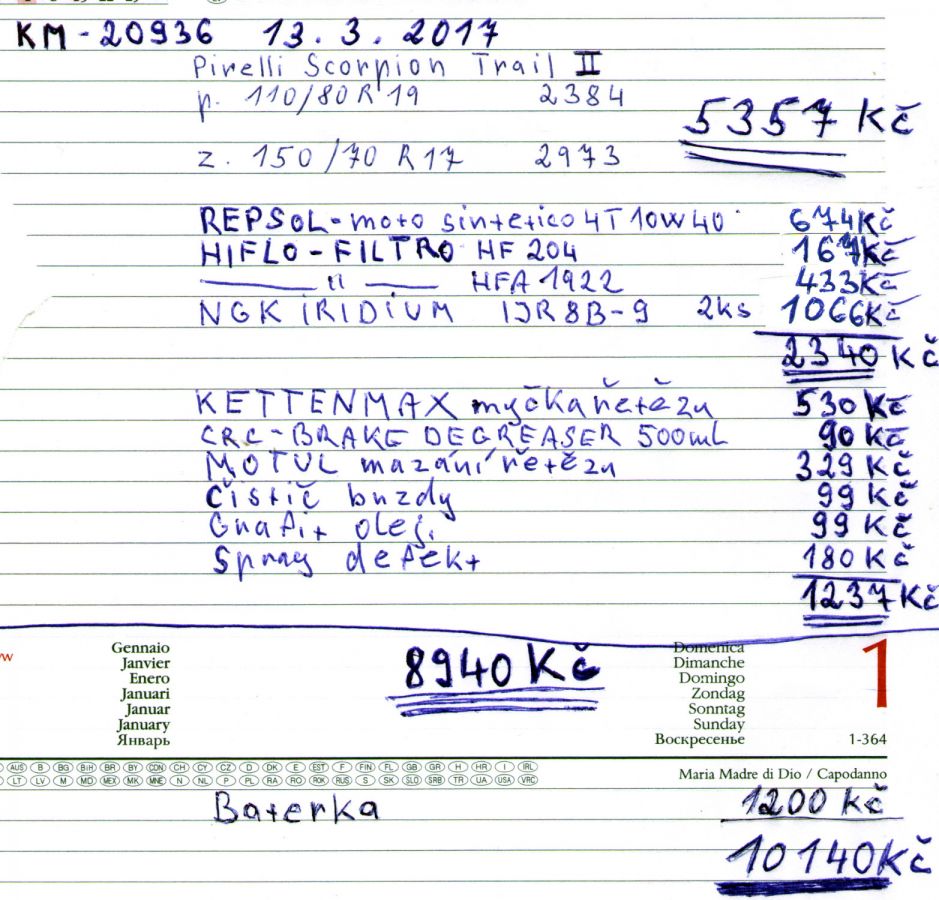 KM-20936 13.3.2017
Pirelli Scorpion Trail II
p. 110/80 R 19 2384
5357 Kč
z. 150/70 R17 2973
REPSOL-moto sintetico 4T 10W40 674Kč
HIFLO-FILTRO HF 204 167Kč
—— 11 —— HFA 1922 433Kč
NGK IRIDIUM IJR8B-9 2ks 1066Kč
2340 Kč
KETTENMAX myčka řetězu 530 Kč
CRC-BRAKE DEGREASER 500mL 90 Kč
MOTUL mazání řetězu 329 Kč
čistič brzdy 99 Kč
Grafit olej. 99 Kč
Spray defekt 180 Kč
1237 Kč
8940 Kč
Gennaio
Janvier
Enero
Januari
Januar
January
Январь
Domenica
Dimanche
Domingo
Zondag
Sonntag
Sunday
Воскресенье
1
1-364
AUS B BG BiH BR BY CDN CH CY CZ D DK E EST F FIN FL GB GR H HR I IRL
LT LV M MD MEX MK MNE N NL P PL RA RO ROK RUS S SK SLO SRB TR UA USA VRC
Maria Madre di Dio / Capodanno
Baterka 1200 kč
10140Kč